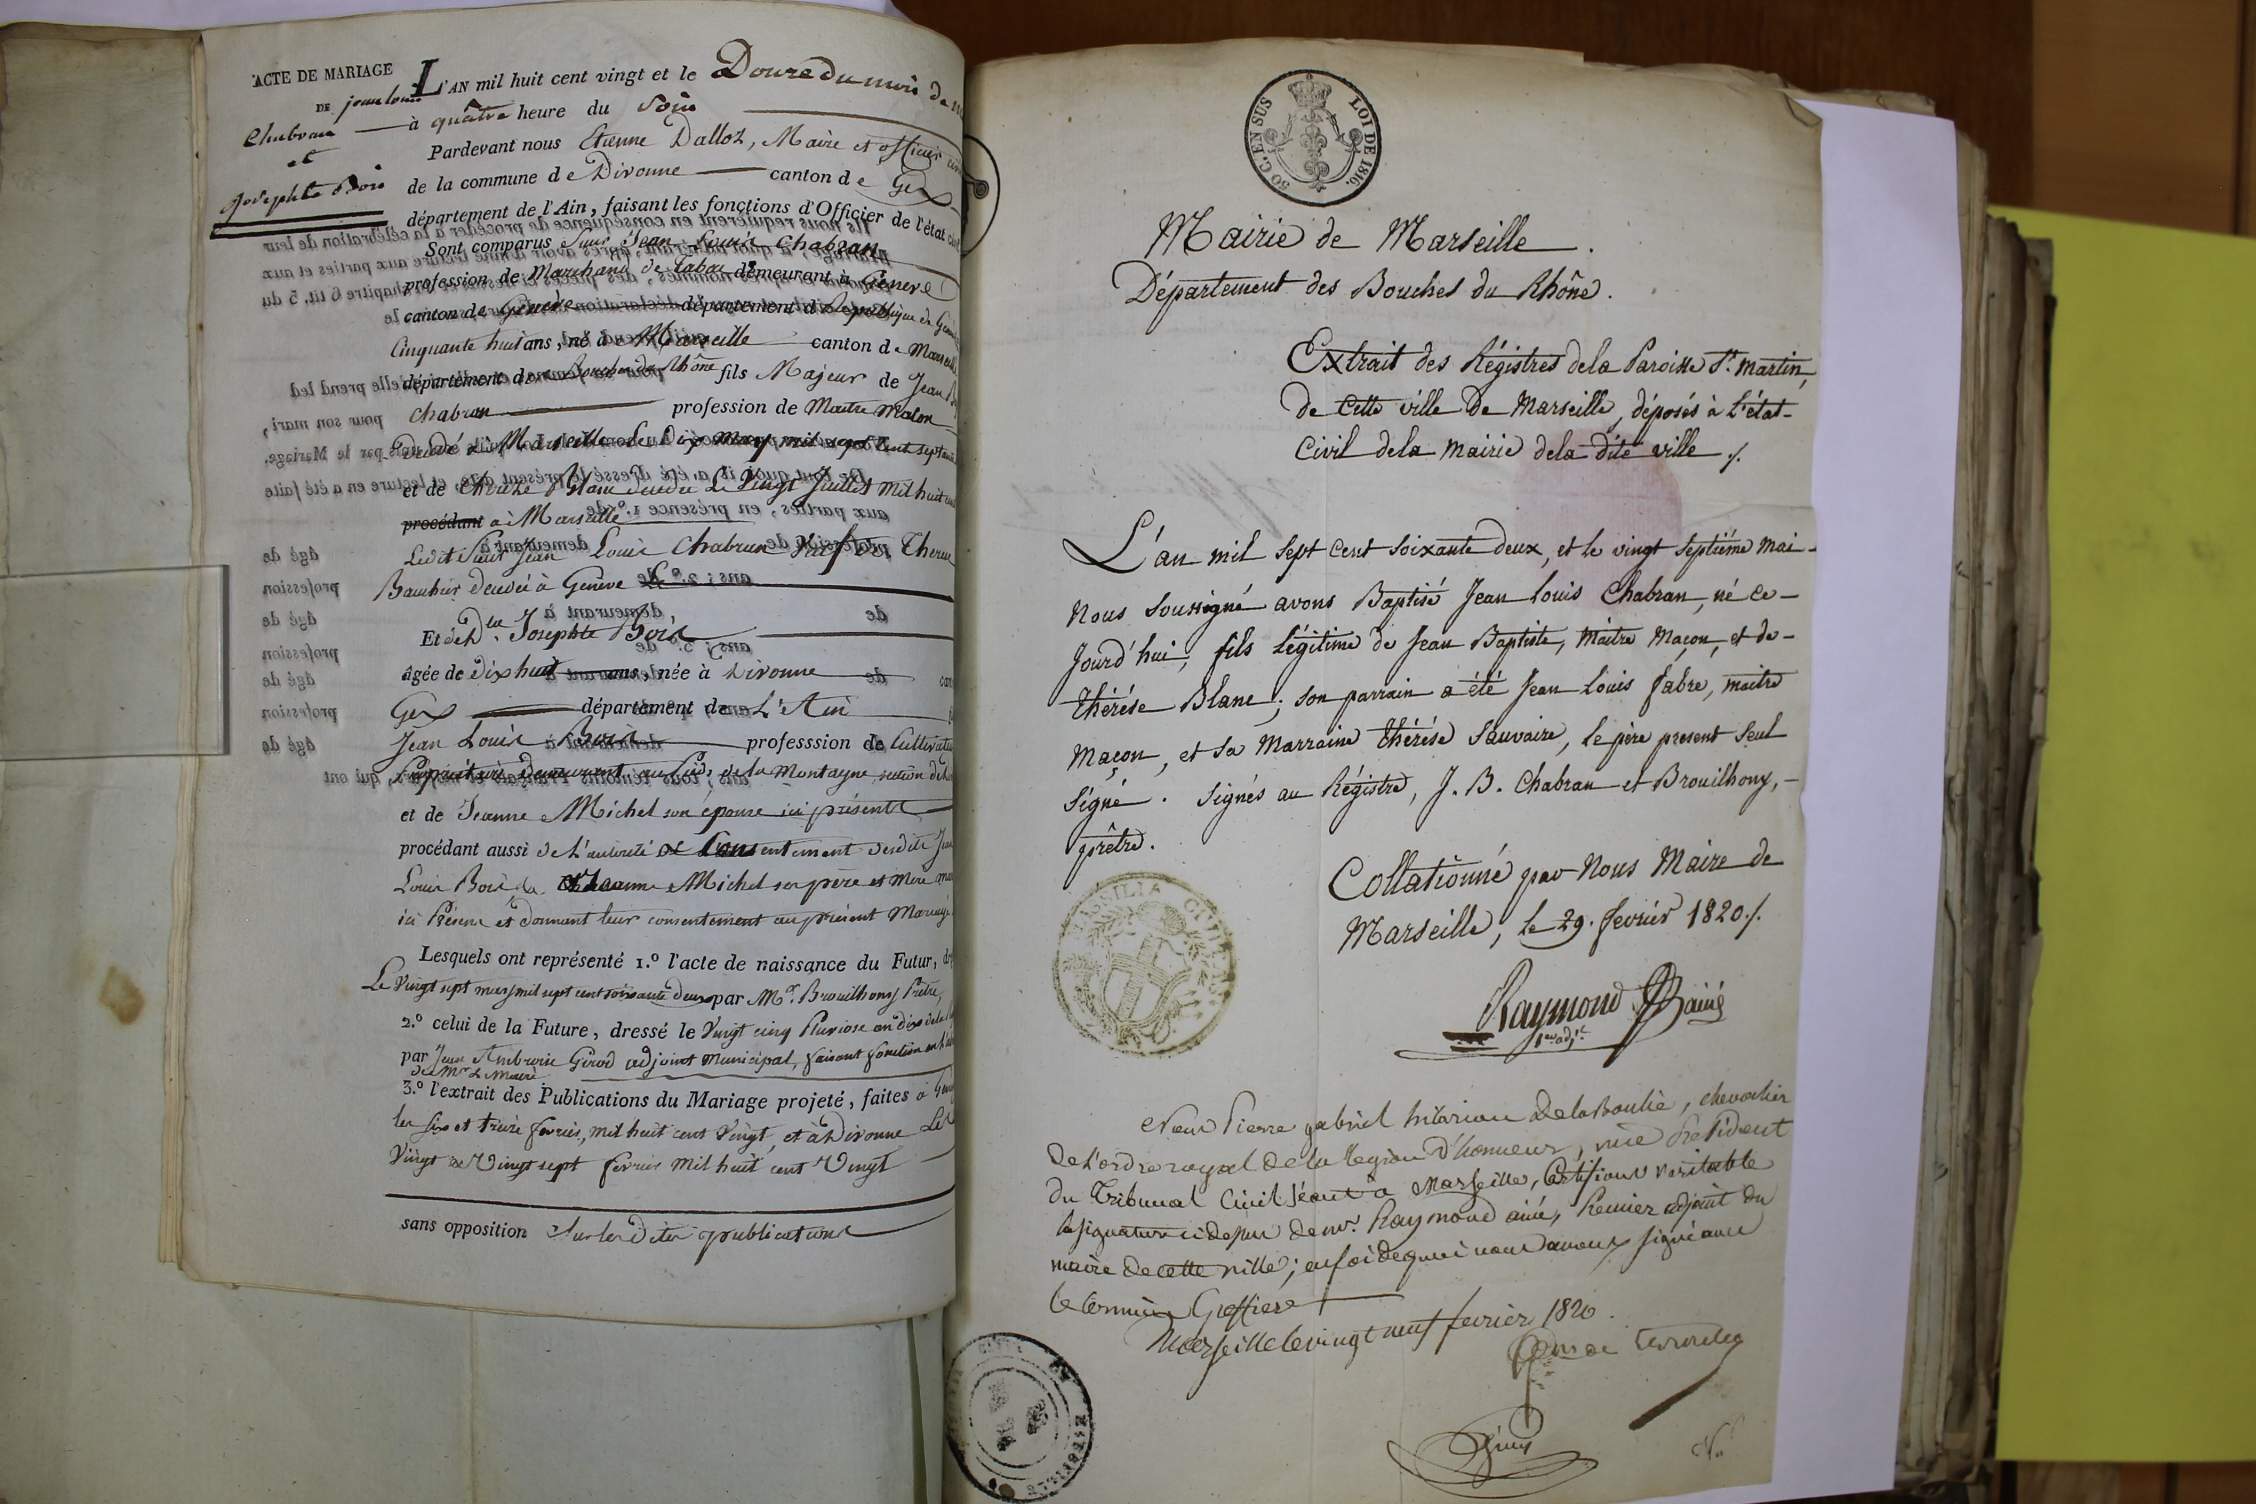 ACTE DE MARIAGE
DE jean louis
Chabran
et
Josephte Bois
L'AN mil huit cent vingt et le Douze du mois de
à quatre heure du Soir
Pardevant nous Etienne Dalloz, Maire et officier
de la commune de Divonne canton de Gex
département de l'Ain, faisant les fonctions d'Officier de l'état
Sont comparus Sieur Jean Louis Chabran
profession de Marchand de Tabac demeurant à Genève
canton de Genève département d République de
Cinquante huit ans, né à Marseille canton de
département des Bouches du Rhône fils Majeur de Jean
Chabran profession de Maitre Maçon
décédé à Marseille Le Dix may mil sept cent
et de Thérèze Blanc décédée Le Vingt Juillet mil huit
procédant à Marseille
Ledit Sieur Jean Louis Chabran Veuf de
décédée à Genève
Et de Dlle Josephte Bois
âgée de Dix huit ans, née à Divonne
Gex département de L'Ain
Jean Louis Bois professsion de
Propriétaire demeurant au Pied de la Montagne, section
et de Jeanne Michel son épouse ici présente
procédant aussi de L'autorité et Consentement desdits
Louis Bois & Jeanne Michel ses père et Mère
ici Présens et donnant leur consentement au présent Mariage
Lesquels ont représenté 1.º l'acte de naissance du Futur,
Le Vingt sept may mil sept cent soixante deux par Mr. Brouilhony Prêtre,
2.º celui de la Future, dressé le Vingt cinq Pluviose an dix
par Jean Ambroise Girod adjoint municipal, faisant fonction
de Mr Le Maire
3.º l'extrait des Publications du Mariage projeté, faites à
les six et treize février, mil huit cent Vingt, et à Divonne Les
Vingt & Vingt sept février mil huit cent Vingt
sans opposition sur les dites publications
50 C. EN SUS
LOI DE 1816.
Mairie de Marseille.
Département des Bouches du Rhône.
Extrait des Régistres dela Paroisse St. Martin,
de Cette ville de Marseille, déposés à l'état-
Civil dela Mairie dela dite ville ./.
L'an mil sept cent soixante deux, et le vingt septième Mai-
Nous soussigné avons Baptisé Jean Louis Chabran, né ce-
Jourd'hui, fils légitime de Jean Baptiste, Maître Maçon, et de-
Thérèse Blanc; son parrain a été Jean Louis fabre, maitre
Maçon, et sa Marraine Thérèse Sauvaire, le père present seul
signé. Signés au Régistre, J. B. Chabran et Brouilhony,-
prêtre.
Collationné par Nous Maire de
Marseille, le 29. fevrier 1820./.
MASSILIA CIVITAS
Raymond Ainé
1er adjt.
Nous Pierre gabriel hilarion de laBoulie, chevalier
de L'ordre royal de la légion d'honneur, vice Président
du Tribunal Civil séant à Marseille, Certifions véritable
la signature ci dessus de mr. Raymond ainé, Premier adjoint du
maire de cette ville; en foi de quoi nous avons signé avec
le commis Greffier
Marseille le vingt neuf fevrier 1820.